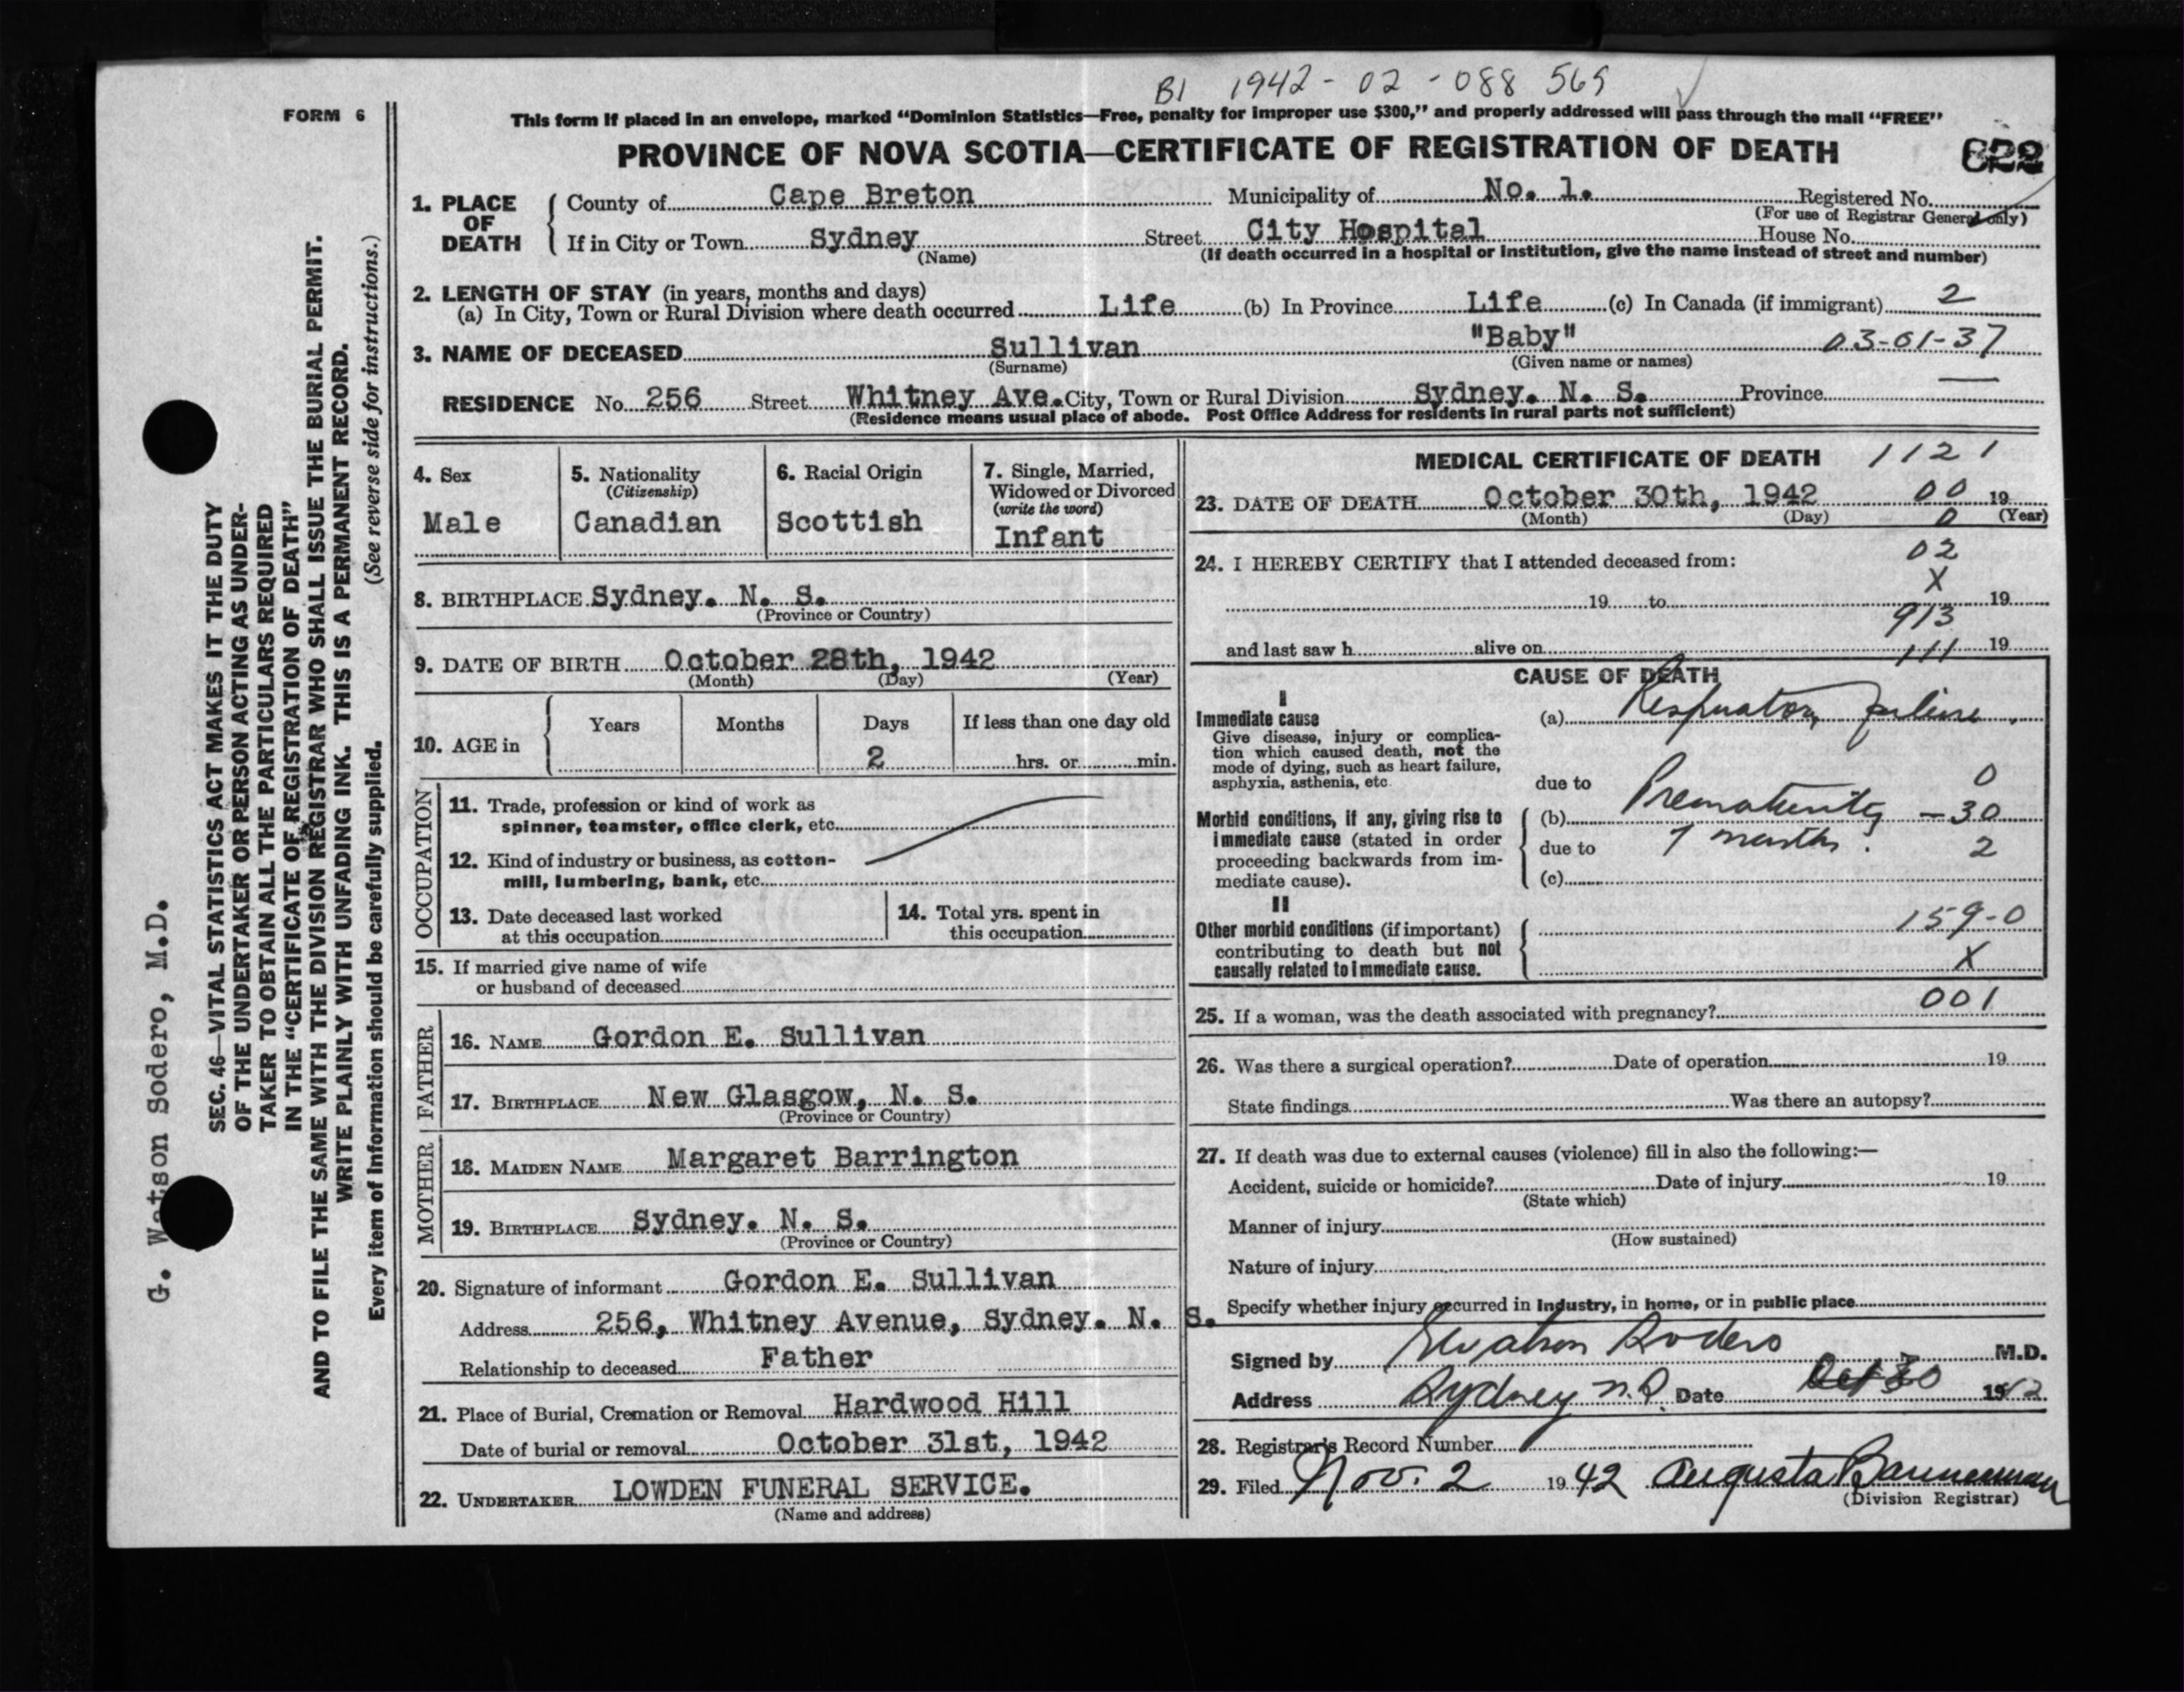 B1 1942-02-088 569
FORM 6
This form if placed in an envelope, marked “Dominion Statistics—Free, penalty for improper use $300,” and properly addressed will pass through the mail “FREE”
PROVINCE OF NOVA SCOTIA—CERTIFICATE OF REGISTRATION OF DEATH
822
1. PLACE OF DEATH
County of Cape Breton Municipality of No. 1. Registered No.
(For use of Registrar General only)
If in City or Town Sydney Street City Hospital House No.
(Name) (If death occurred in a hospital or institution, give the name instead of street and number)
2. LENGTH OF STAY (in years, months and days)
(a) In City, Town or Rural Division where death occurred Life (b) In Province Life (c) In Canada (if immigrant) 2
3. NAME OF DECEASED Sullivan "Baby" 03-01-37
(Surname) (Given name or names)
RESIDENCE No. 256 Street Whitney Ave. City, Town or Rural Division Sydney. N. S. Province
(Residence means usual place of abode. Post Office Address for residents in rural parts not sufficient)
4. Sex
Male
5. Nationality
(Citizenship)
Canadian
6. Racial Origin
Scottish
7. Single, Married,
Widowed or Divorced
(write the word)
Infant
8. BIRTHPLACE Sydney. N. S.
(Province or Country)
9. DATE OF BIRTH October 28th, 1942
(Month) (Day) (Year)
10. AGE in
Years Months Days If less than one day old
2 hrs. or min.
OCCUPATION
11. Trade, profession or kind of work as
spinner, teamster, office clerk, etc.
12. Kind of industry or business, as cotton-
mill, lumbering, bank, etc.
13. Date deceased last worked
at this occupation
14. Total yrs. spent in
this occupation
15. If married give name of wife
or husband of deceased
FATHER
16. NAME Gordon E. Sullivan
17. BIRTHPLACE New Glasgow, N. S.
(Province or Country)
MOTHER
18. MAIDEN NAME Margaret Barrington
19. BIRTHPLACE Sydney. N. S.
(Province or Country)
20. Signature of informant Gordon E. Sullivan
Address 256, Whitney Avenue, Sydney. N. S.
Relationship to deceased Father
21. Place of Burial, Cremation or Removal Hardwood Hill
Date of burial or removal October 31st, 1942
22. UNDERTAKER LOWDEN FUNERAL SERVICE.
(Name and address)
MEDICAL CERTIFICATE OF DEATH 1121
23. DATE OF DEATH October 30th, 1942 00 19
(Month) (Day) 0 (Year)
24. I HEREBY CERTIFY that I attended deceased from: 02
X
19 to 19
913
and last saw h alive on 111 19
CAUSE OF DEATH
I
Immediate cause
Give disease, injury or complica-
tion which caused death, not the
mode of dying, such as heart failure,
asphyxia, asthenia, etc.
(a) Respiratory failure.
due to 0
Morbid conditions, if any, giving rise to
immediate cause (stated in order
proceeding backwards from im-
mediate cause).
(b) Prematurity -30
due to 7 months. 2
(c)
II
Other morbid conditions (if important)
contributing to death but not
causally related to immediate cause.
159-0
X
001
25. If a woman, was the death associated with pregnancy?
26. Was there a surgical operation? Date of operation 19
State findings Was there an autopsy?
27. If death was due to external causes (violence) fill in also the following:—
Accident, suicide or homicide? Date of injury 19
(State which)
Manner of injury
(How sustained)
Nature of injury
Specify whether injury occurred in industry, in home, or in public place
Signed by G Watson Sodero M.D.
Address Sydney N.S. Date Oct 30 1942
28. Registrar's Record Number
29. Filed Nov. 2 1942 Augusta Bannerman
(Division Registrar)
G. Watson Sodero, M.D.
SEC. 46—VITAL STATISTICS ACT MAKES IT THE DUTY
OF THE UNDERTAKER OR PERSON ACTING AS UNDER-
TAKER TO OBTAIN ALL THE PARTICULARS REQUIRED
IN THE “CERTIFICATE OF REGISTRATION OF DEATH”
AND TO FILE THE SAME WITH THE DIVISION REGISTRAR WHO SHALL ISSUE THE BURIAL PERMIT.
WRITE PLAINLY WITH UNFADING INK. THIS IS A PERMANENT RECORD.
Every item of Information should be carefully supplied. (See reverse side for instructions.)